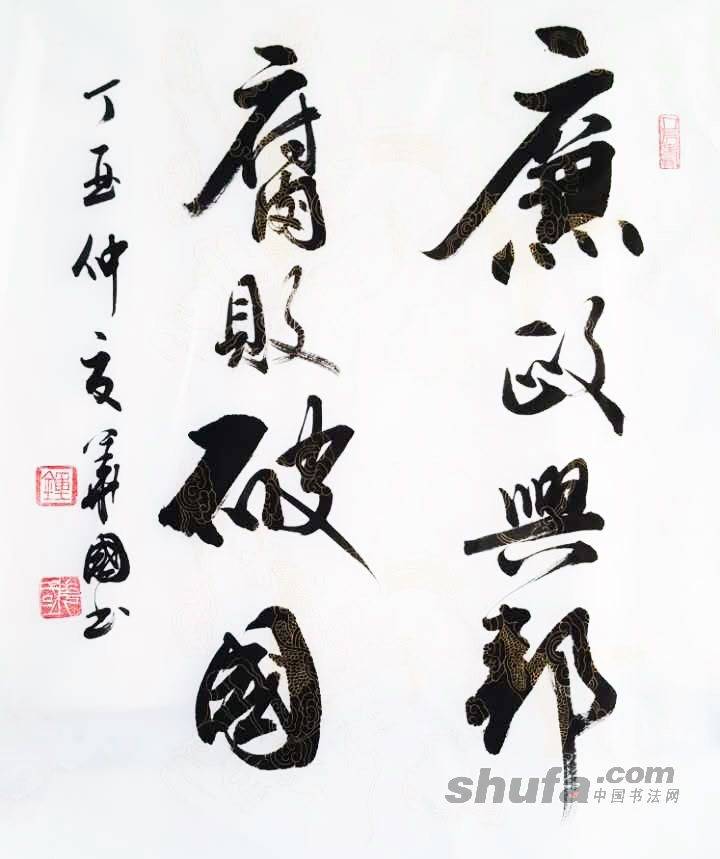 廉政興邦
腐敗破國
丁酉仲夏華國書
鍾
shufa.com
中国书法网